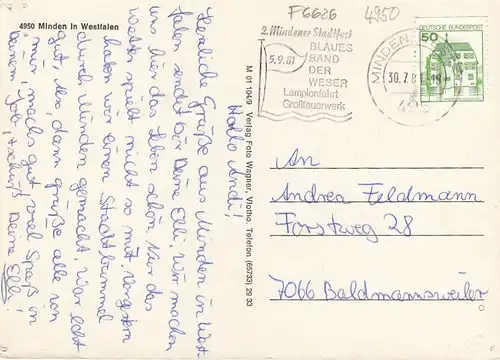 F6626
4950
4950 Minden in Westfalen
2. Mindener Stadtfest
BLAUES
BAND
DER
WESER
5.9.81
Lampionfahrt
Großfeuerwerk
MINDEN
30.7.81
495
DEUTSCHE BUNDESPOST
50
M 01 104/9 Verlag Foto Wagner, Vlotho, Telefon (65733) 29 33
Hallo Andi!
Herzliche Grüße aus Minden in West
falen sendet Dir Deine Elli. Wir machen
uns hier das Leben schön. Nur das
Wetter spielt nicht so mit. Gestern
haben wir einen Stadtbummel
durch Minden gemacht. War echt
gut. Also, dann grüße alle von
mir, machs gut! viel Spaß in
Deinem tschüß Deine Elli
An
Andrea Feldmann
Forstweg 28
7066 Baldmannsweiler